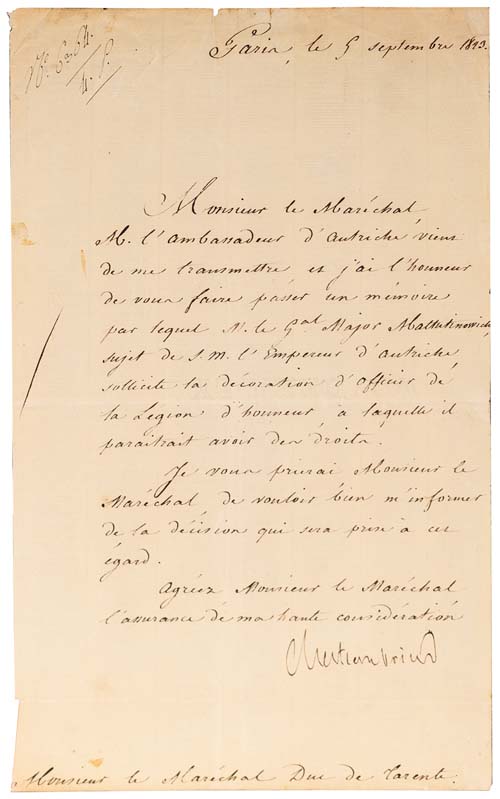 Paris, le 5 septembre 1823.
4. P.
Monsieur le Maréchal
M. l'ambassadeur d'autriche vient
de me transmettre et j'ai l'honneur
de vous faire passer un mémoire
par lequel M. le Gal Major
sujet de S. M. l'Empereur d'autriche
sollicite la décoration d'officier de
la Légion d'honneur, à laquelle il
paraitrait avoir des droits.
Je vous prierai Monsieur le
Maréchal de vouloir bien m'informer
de la décision qui sera prise à cet
égard.
Agréez Monsieur le Maréchal
l'assurance de ma haute considération
Chateaubriand
Monsieur le Maréchal Duc de Tarente.